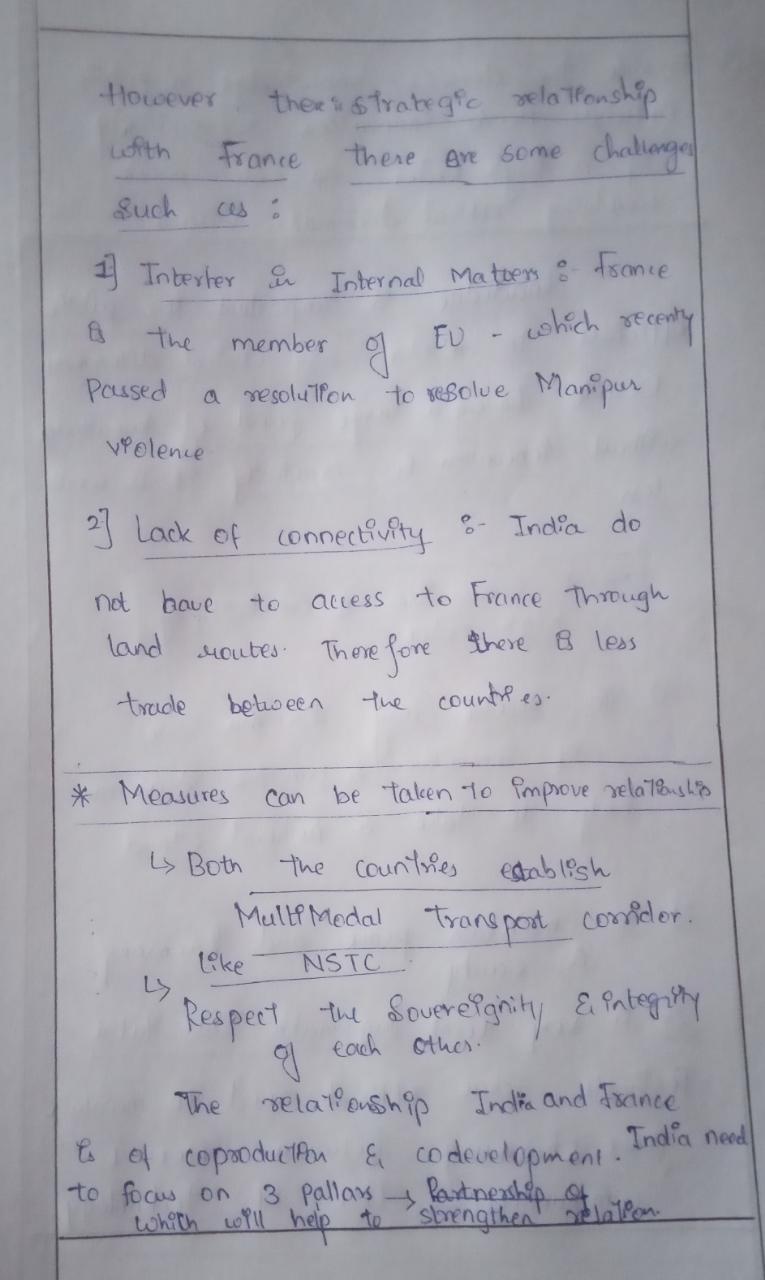 However there is strategic relationship
with france there are some challenges
such as :
1] Interfer in Internal Matters :- france
is the member of EU - which recenty
Passed a resolution to resolve Manipur
violence
2] Lack of connectivity :- India do
not have to access to France Through
land routes. Therefore there is less
trade between the countries.
* Measures can be taken to improve relationship
↳ Both the countries establish
MultiModal transport corridor.
like NSTC
↳ Respect the Sovereignity & integrity
of each other.
The relationship India and France
is of coproduction & codevelopment. India need
to focus on 3 pallars → Partnership of
which will help to strengthen relation.